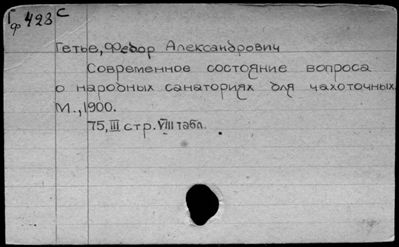 Г
ф 423 с
Гетье, Федор Александрович
Современное состояние вопроса
о народных санаториях для чахоточных.
М., 1900.
75, III стр. VIII табл.